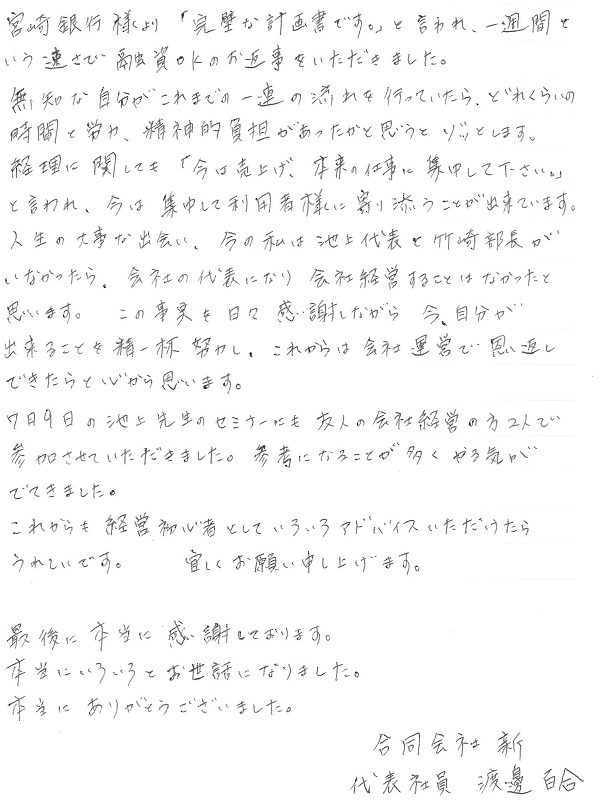 宮崎銀行様より「完璧な計画書です。」と言われ、一週間と
いう速さで融資OKのお返事をいただきました。
無知な自分がこれまでの一連の流れを行っていたら、どれくらいの
時間と労力、精神的負担があったかと思うとゾッとします。
経理に関しても「今は売上げ、本来の仕事に集中して下さい。」
と言われ、今は集中して利用者様に寄り添うことが出来ています。
人生の大事な出会い、今の私は池上代表と竹崎部長が
いなかったら、会社の代表になり会社経営することはなかったと
思います。 この事実を日々感謝しながら今、自分が
出来ることを精一杯努力し、これからは会社運営で恩返し
できたらと心から思います。
7月9日の池上先生のセミナーにも友人の会社経営の方2人で
参加させていただきました。参考になることが多くやる気が
でてきました。
これからも経営初心者としていろいろアドバイスいただけたら
うれしいです。 宜しくお願い申し上げます。
最後に本当に感謝しております。
本当にいろいろとお世話になりました。
本当にありがとうございました。
合同会社 新
代表社員 渡邊 百合